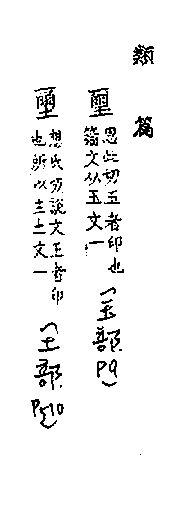 類篇
璽 思此切王者印也
籀文从玉文一 (玉部 P9)
壐 想氏切說文王者印
也所以主土文一 (土部 P510)